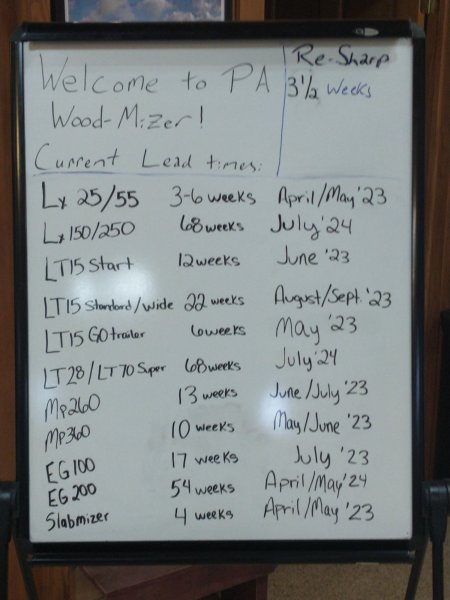 Welcome to PA
Wood-Mizer!
Re-Sharp
3 1/2 Weeks
Current Lead times:
Lx 25/55 3-6 weeks April/May '23
Lx150/250 68 weeks July '24
LT15 Start 12 weeks June '23
LT15 Standard/Wide 22 weeks August/Sept. '23
LT15 GO trailer 6 weeks May '23
LT28/LT70 Super 68 weeks July '24
Mp260 13 weeks June/July '23
Mp360 10 weeks May/June '23
EG100 17 weeks July '23
EG200 54 weeks April/May '24
Slabmizer 4 weeks April/May '23